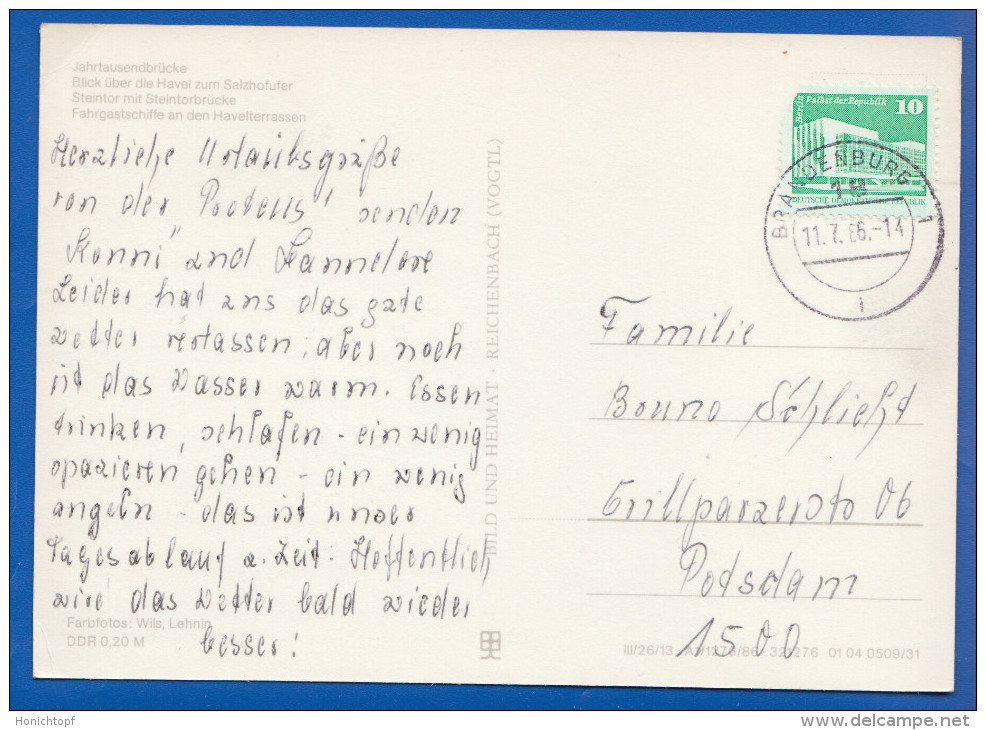 Jahrtausendbrücke
Blick über die Havel zum Salzhofufer
Steintor mit Steintorbrücke
Fahrgastschiffe an den Havelterrassen
Herzliche Urlaubsgrüße
von der "Proteus" senden
Konni und Hannelore
Leider hat uns das gute
Wetter verlassen, aber noch
ist das Wasser warm. Essen
trinken, schlafen - ein wenig
spazieren gehen - ein wenig
angeln - das ist unser
Tagesablauf z. Zeit. Hoffentlich
wird das Wetter bald wieder
besser!
Farbfotos: Wils, Lehnin
DDR 0,20 M
BILD UND HEIMAT · REICHENBACH (VOGTL)
Berlin Palast der Republik 10
DEUTSCHE DEMOKRATISCHE REPUBLIK
BRANDENBURG 1
11.7.86.-14
i
Familie
Bruno Schlicht
Grillparzerstr 0b
Potsdam
1500
III/26/13 A1/1276/86 321276 01 04 0509/31
Honichtopf
www.delcampe.net